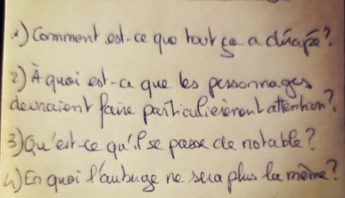 1) Comment est-ce que tout ça a dérapé?
2) À quoi est-ce que les personnages
devraient faire particulièrement attention?
3) Qu'est-ce qu'il se passe de notable?
4) En quoi l'auberge ne sera plus la même?